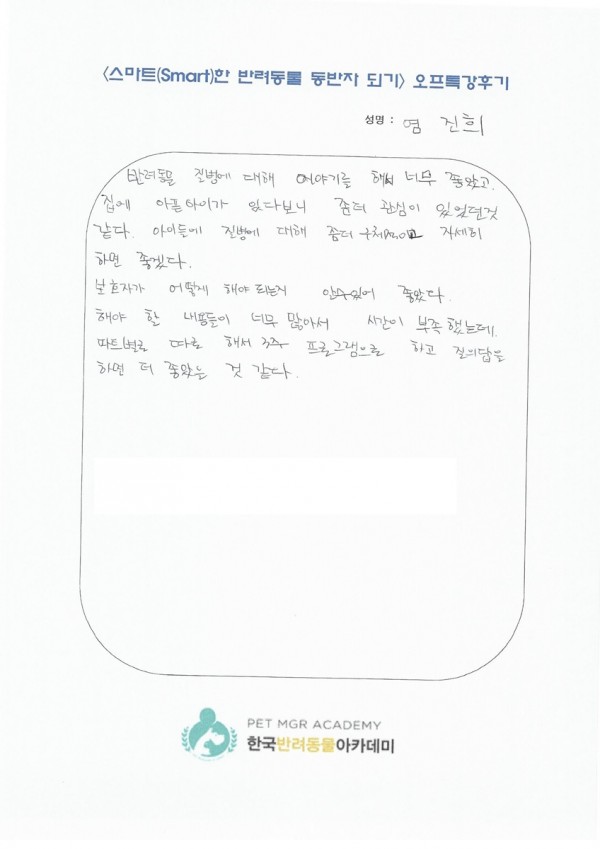 <스마트(Smart)한 반려동물 동반자 되기> 오프특강후기
성명 : 염 진희
반려동물 질병에 대해 이야기를 해서 너무 좋았고.
집에 아픈 아이가 있다보니 좀더 관심이 있었던것
같다. 아이들에 질병에 대해 좀더 구체적으로 자세히
하면 좋겠다.
보호자가 어떻게 해야 되는지 알수있어 좋았다.
해야 할 내용들이 너무 많아서 시간이 부족했는데.
파트별로 따로 해서 3주 프로그램으로 하고 질의답을
하면 더 좋았을 것 같다.
PET MGR ACADEMY
한국반려동물아카데미